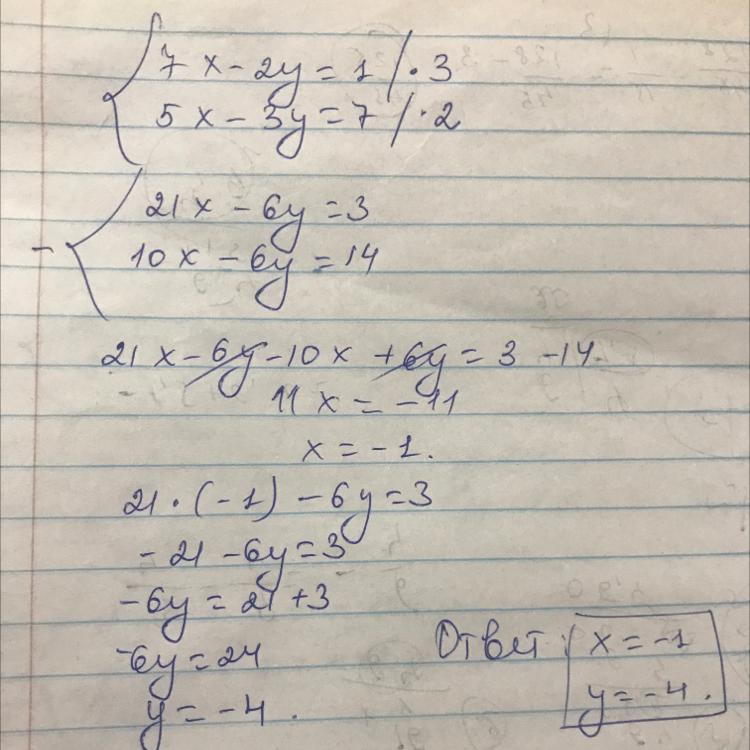 7x - 2y = 1 / · 3
5x - 3y = 7 / · 2
21x - 6y = 3
- 10x - 6y = 14
21x - 6y - 10x + 6y = 3 - 14.
11x = -11
x = -1.
21 · (-1) - 6y = 3
-21 - 6y = 3
-6y = 21 + 3
-6y = 24
y = -4.
Ответ: x = -1
y = -4.